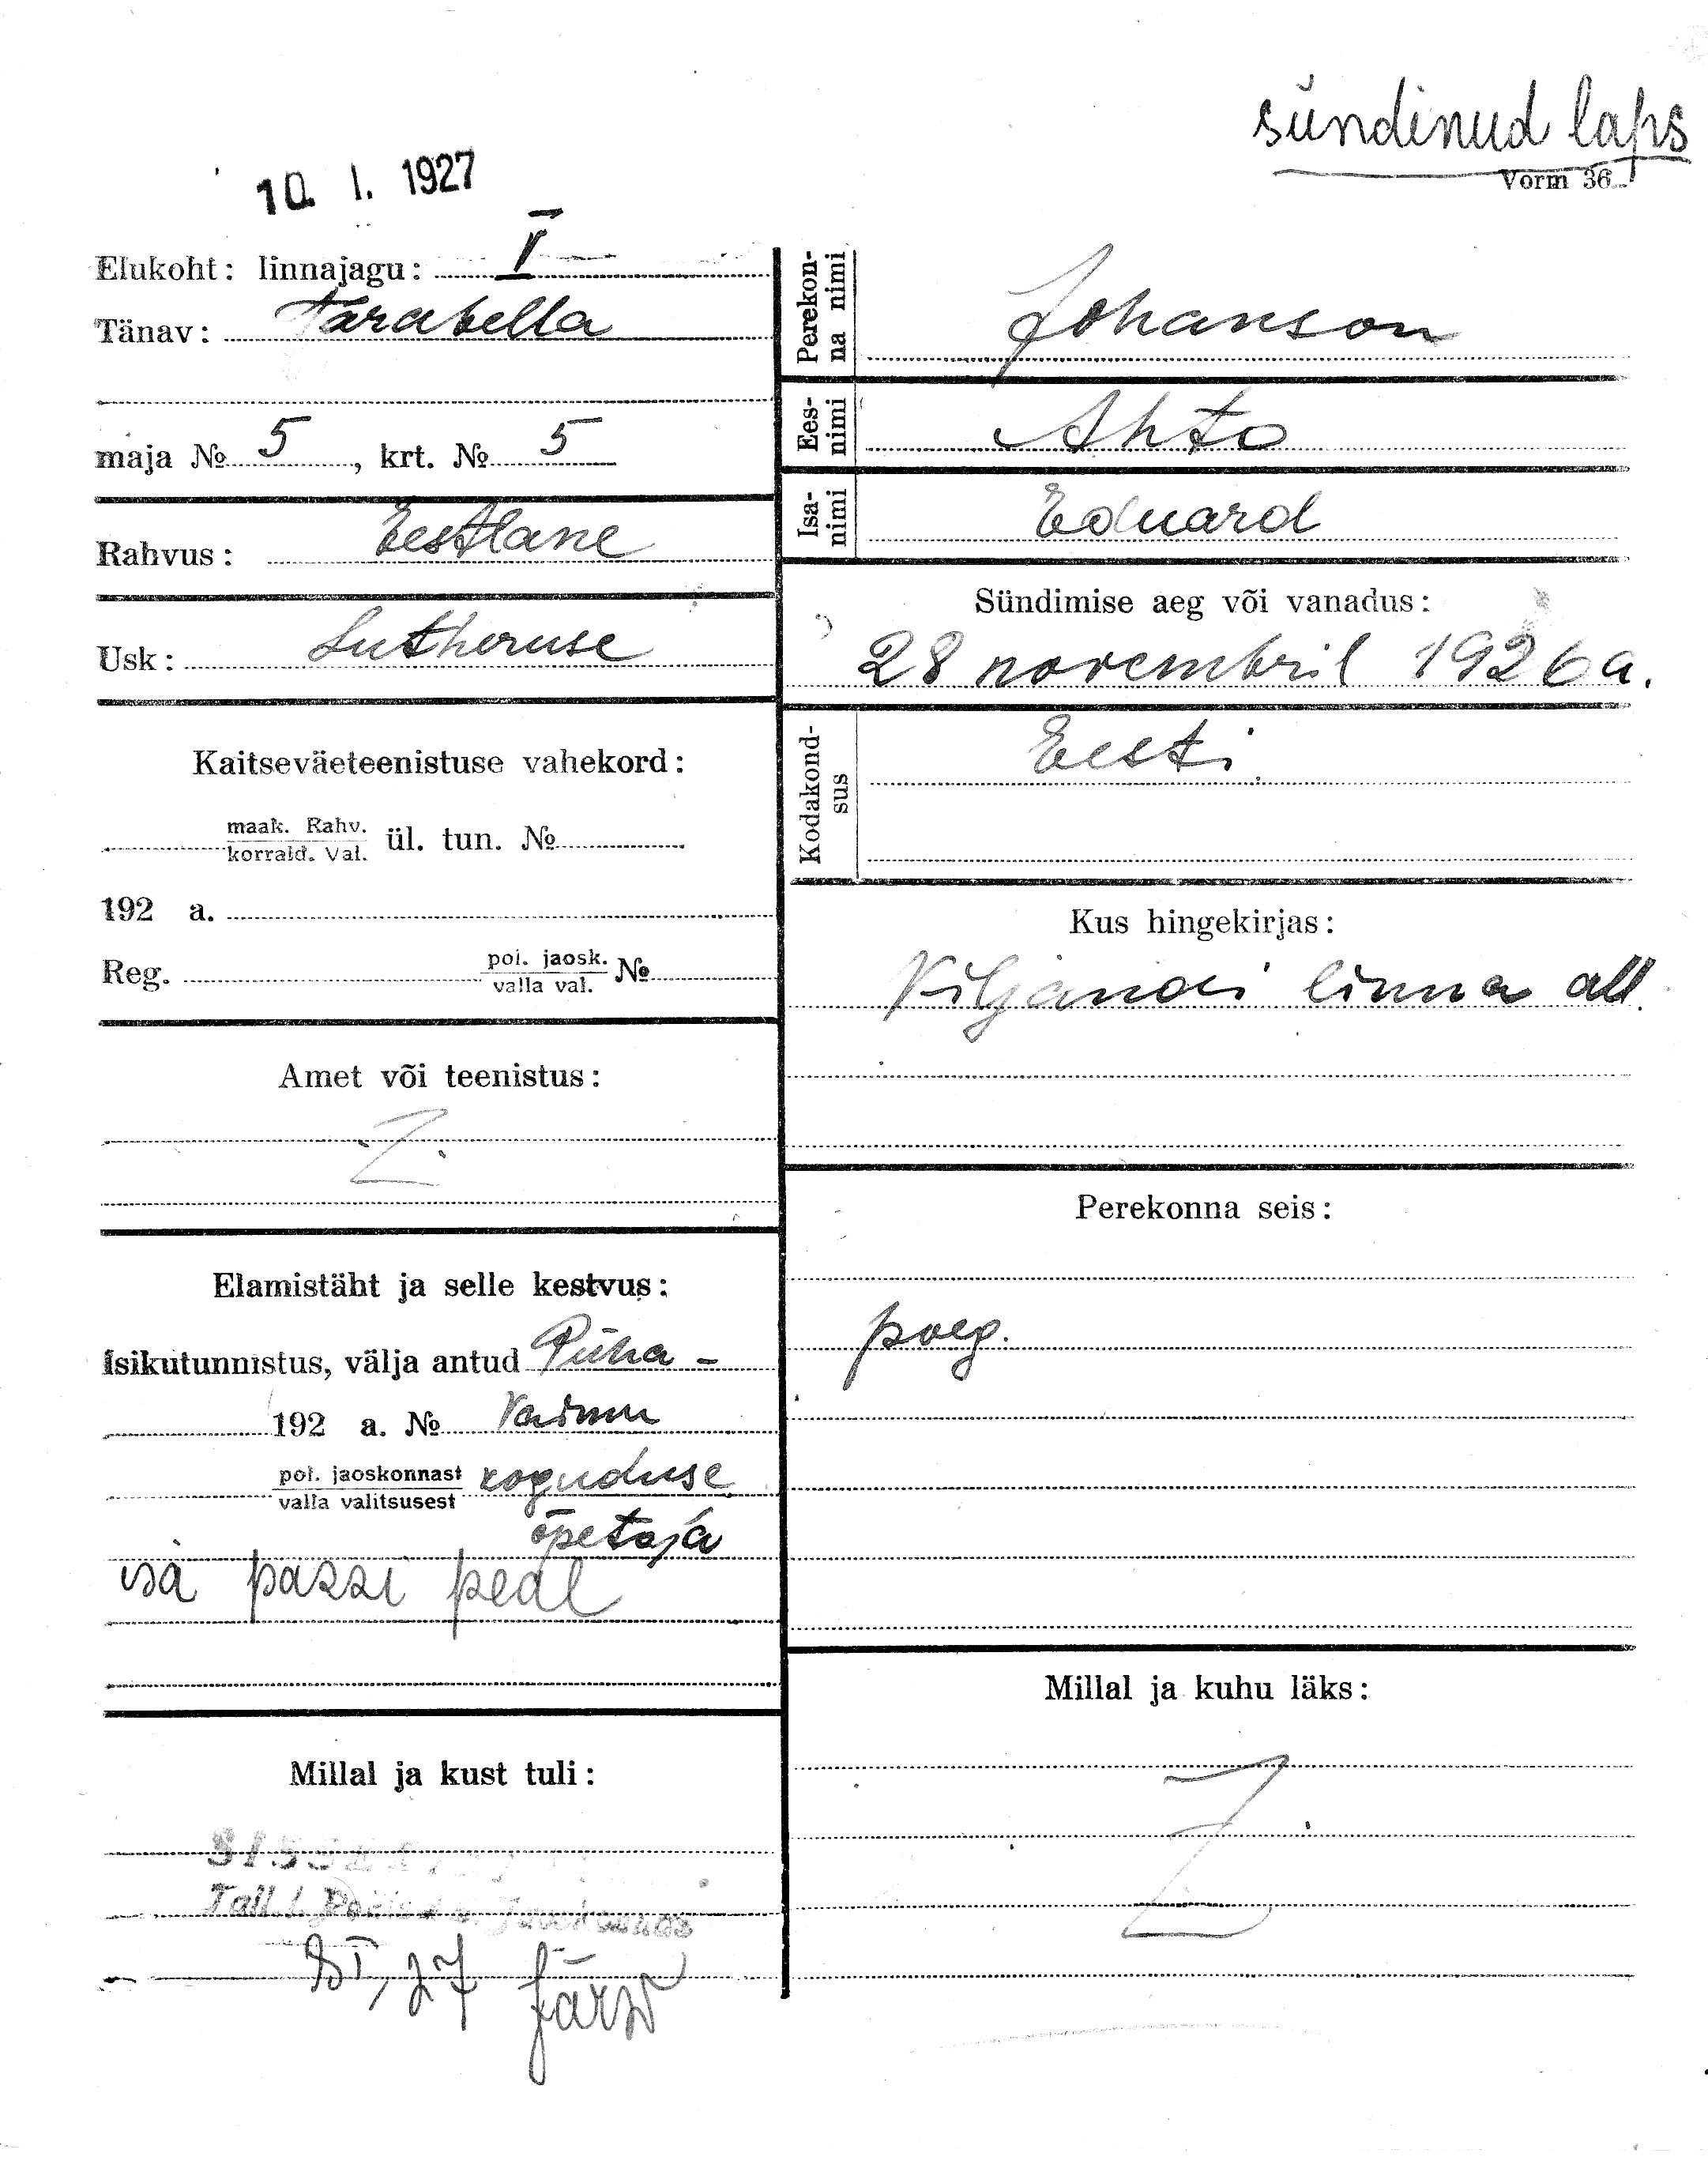 sündinud laps
Vorm 36
10. I. 1927
Elukoht: linnajagu: I
Tänav: Tarabella
maja № 5, krt. № 5
Rahvus: Eestlane
Usk: Lutheruse
Kaitseväeteenistuse vahekord:
maak. Rahv.
korrald. Val. ül. tun. №
192 a.
Reg. pol. jaosk.
valla val. №
Amet või teenistus:
Elamistäht ja selle kestvus:
Isikutunnistus, välja antud Püha-
192 a. № Vaimu
pol. jaoskonnast
valla valitsusest koguduse
õpetaja
isa passi peal
Millal ja kust tuli:
Tall. I.
I, 27 Järw
Perekon-
na nimi
Johanson
Ees-
nimi
Ahto
Isa-
nimi
Eduard
Sündimise aeg või vanadus:
28 novembril 1926 a.
Kodakond-
sus
Eesti
Kus hingekirjas:
Viljandi linna all.
Perekonna seis:
poeg.
Millal ja kuhu läks: